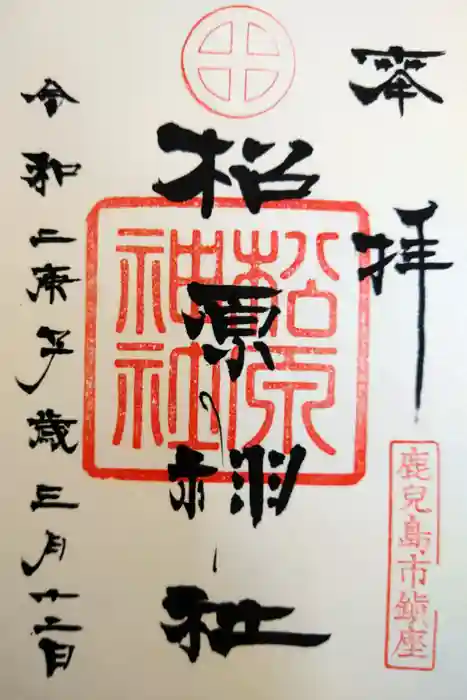 奉拝
鹿兒島市鎭座
松原神社
松原神社
令和二庚子歳三月廿二日